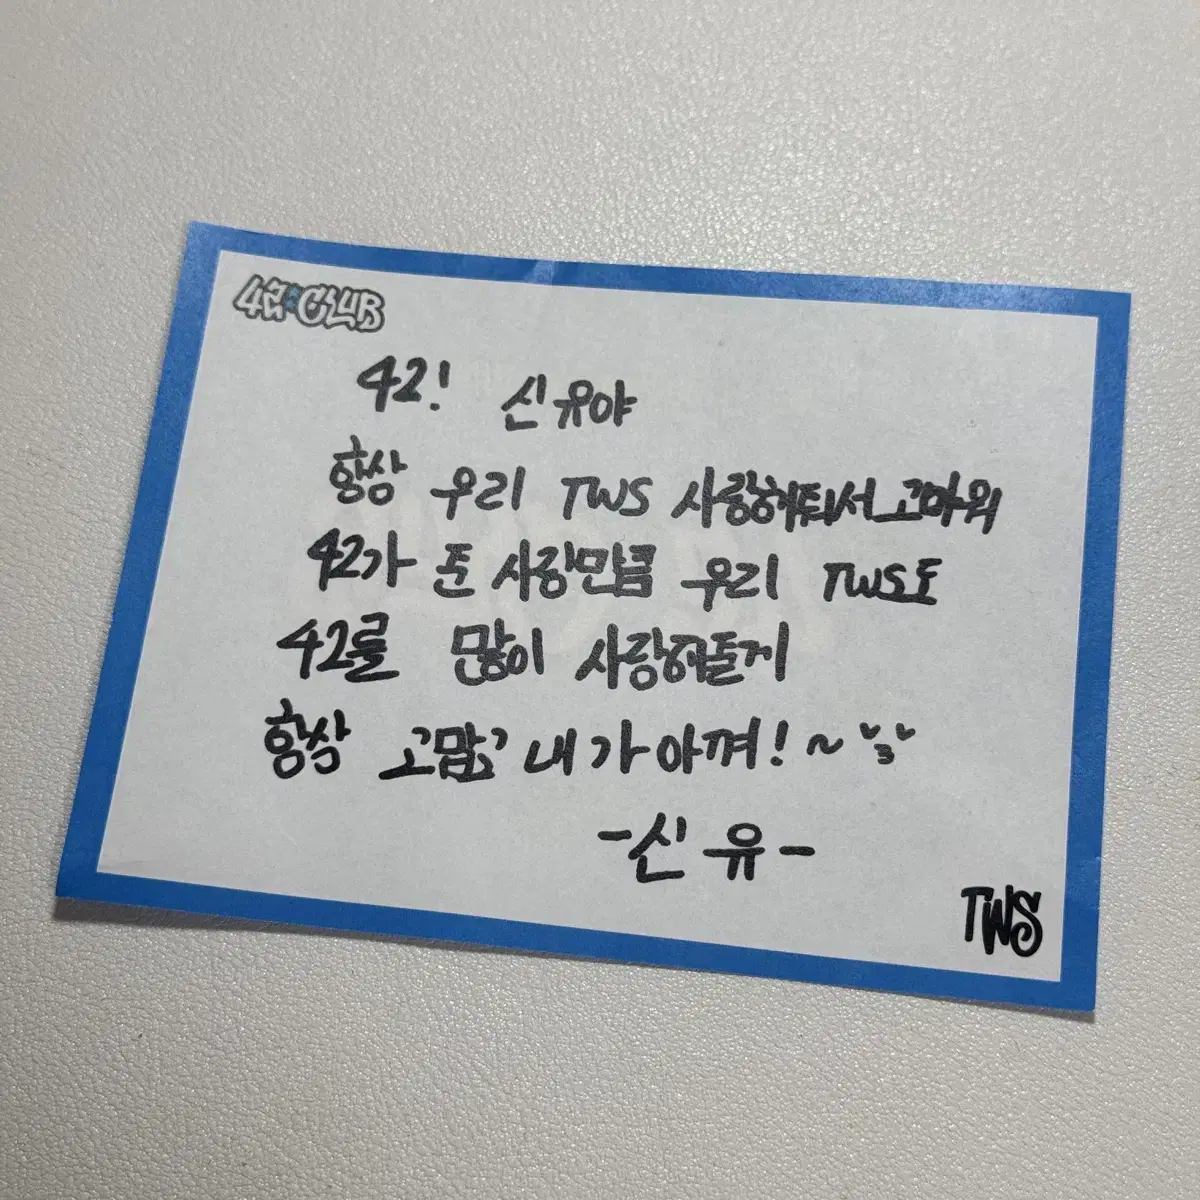 42:CLUB
42! 신유야
항상 우리 TWS 사랑해줘서 고마워
42가 준 사랑만큼 우리 TWS도
42를 많이 사랑해줄게
항상 고맙고 내가 아껴!~
-신유-
TWS